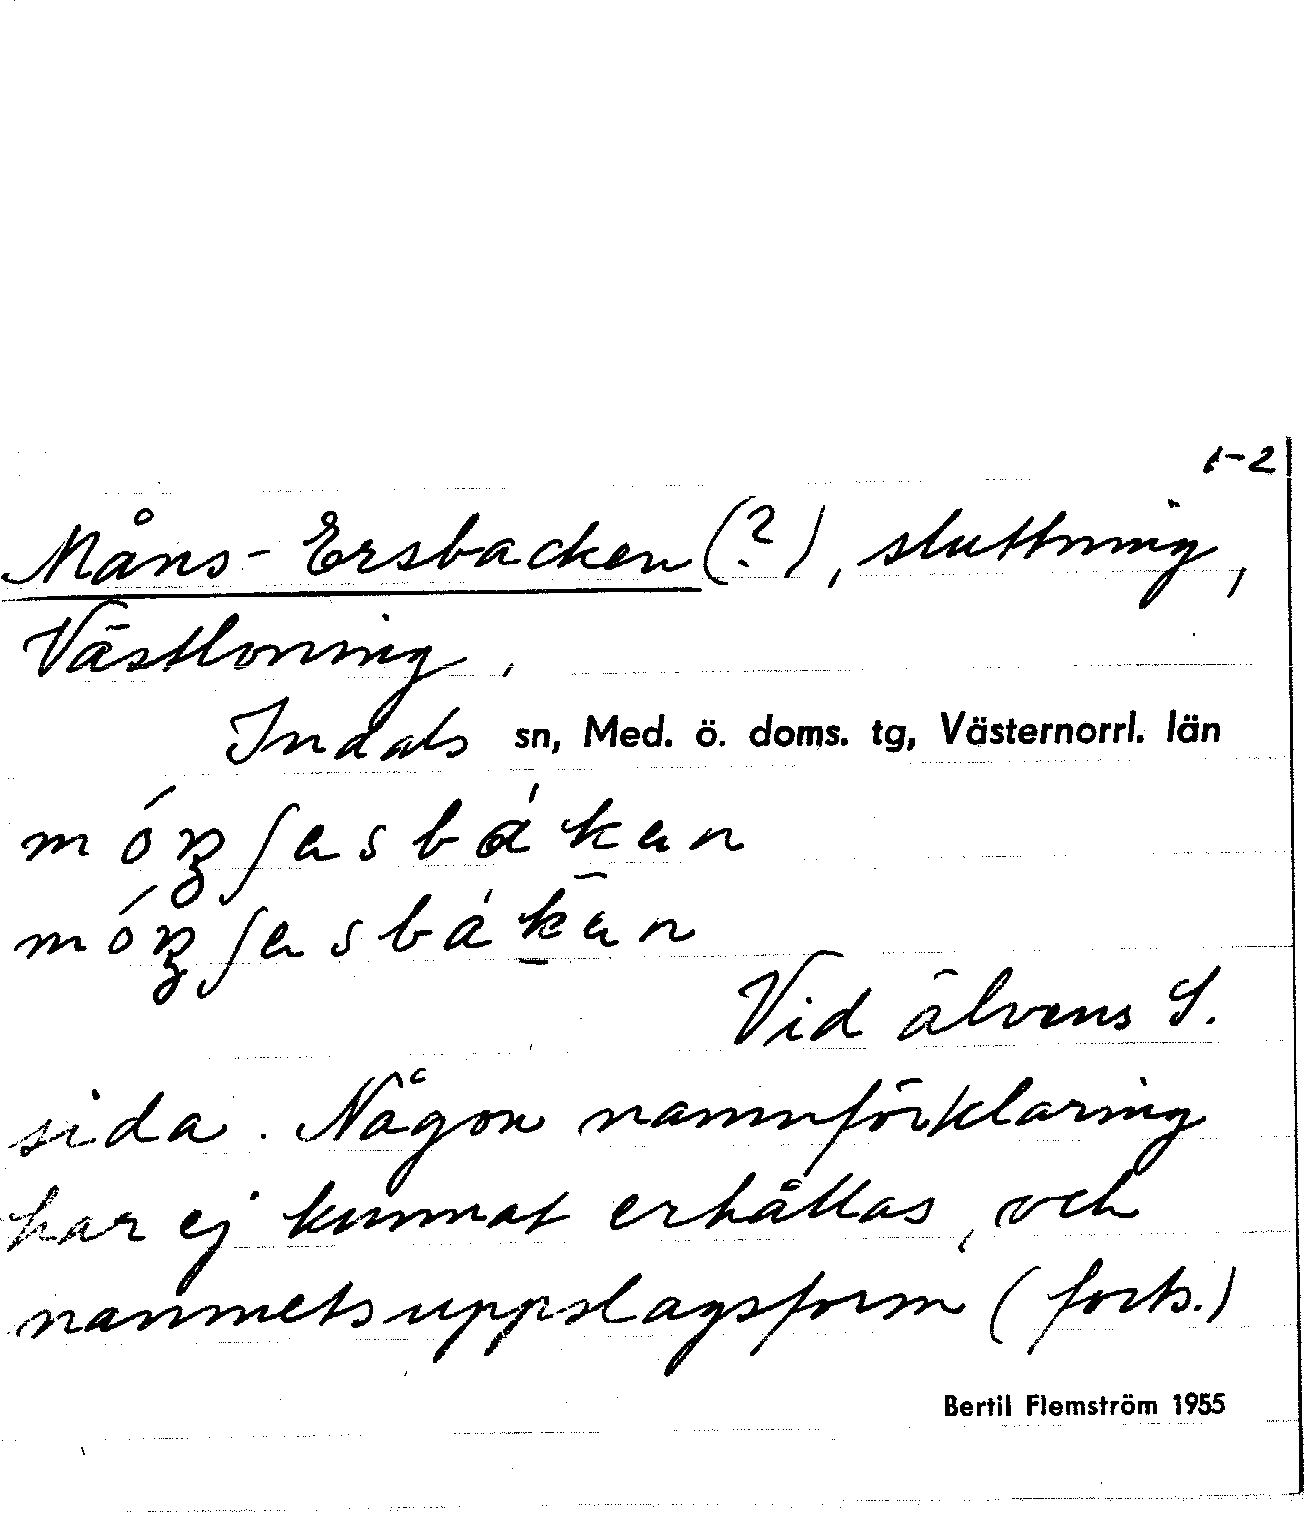 1-2
Måns-Ersbacken (?), sluttning,
Västloning,
Indals sn, Med. ö. doms. tg, Västernorrl. län
Vid älvens S.
sida. Någon namnförklaring
har ej kunnat erhållas, och
namnets uppslagsform (forts.)
Bertil Flemström 1955